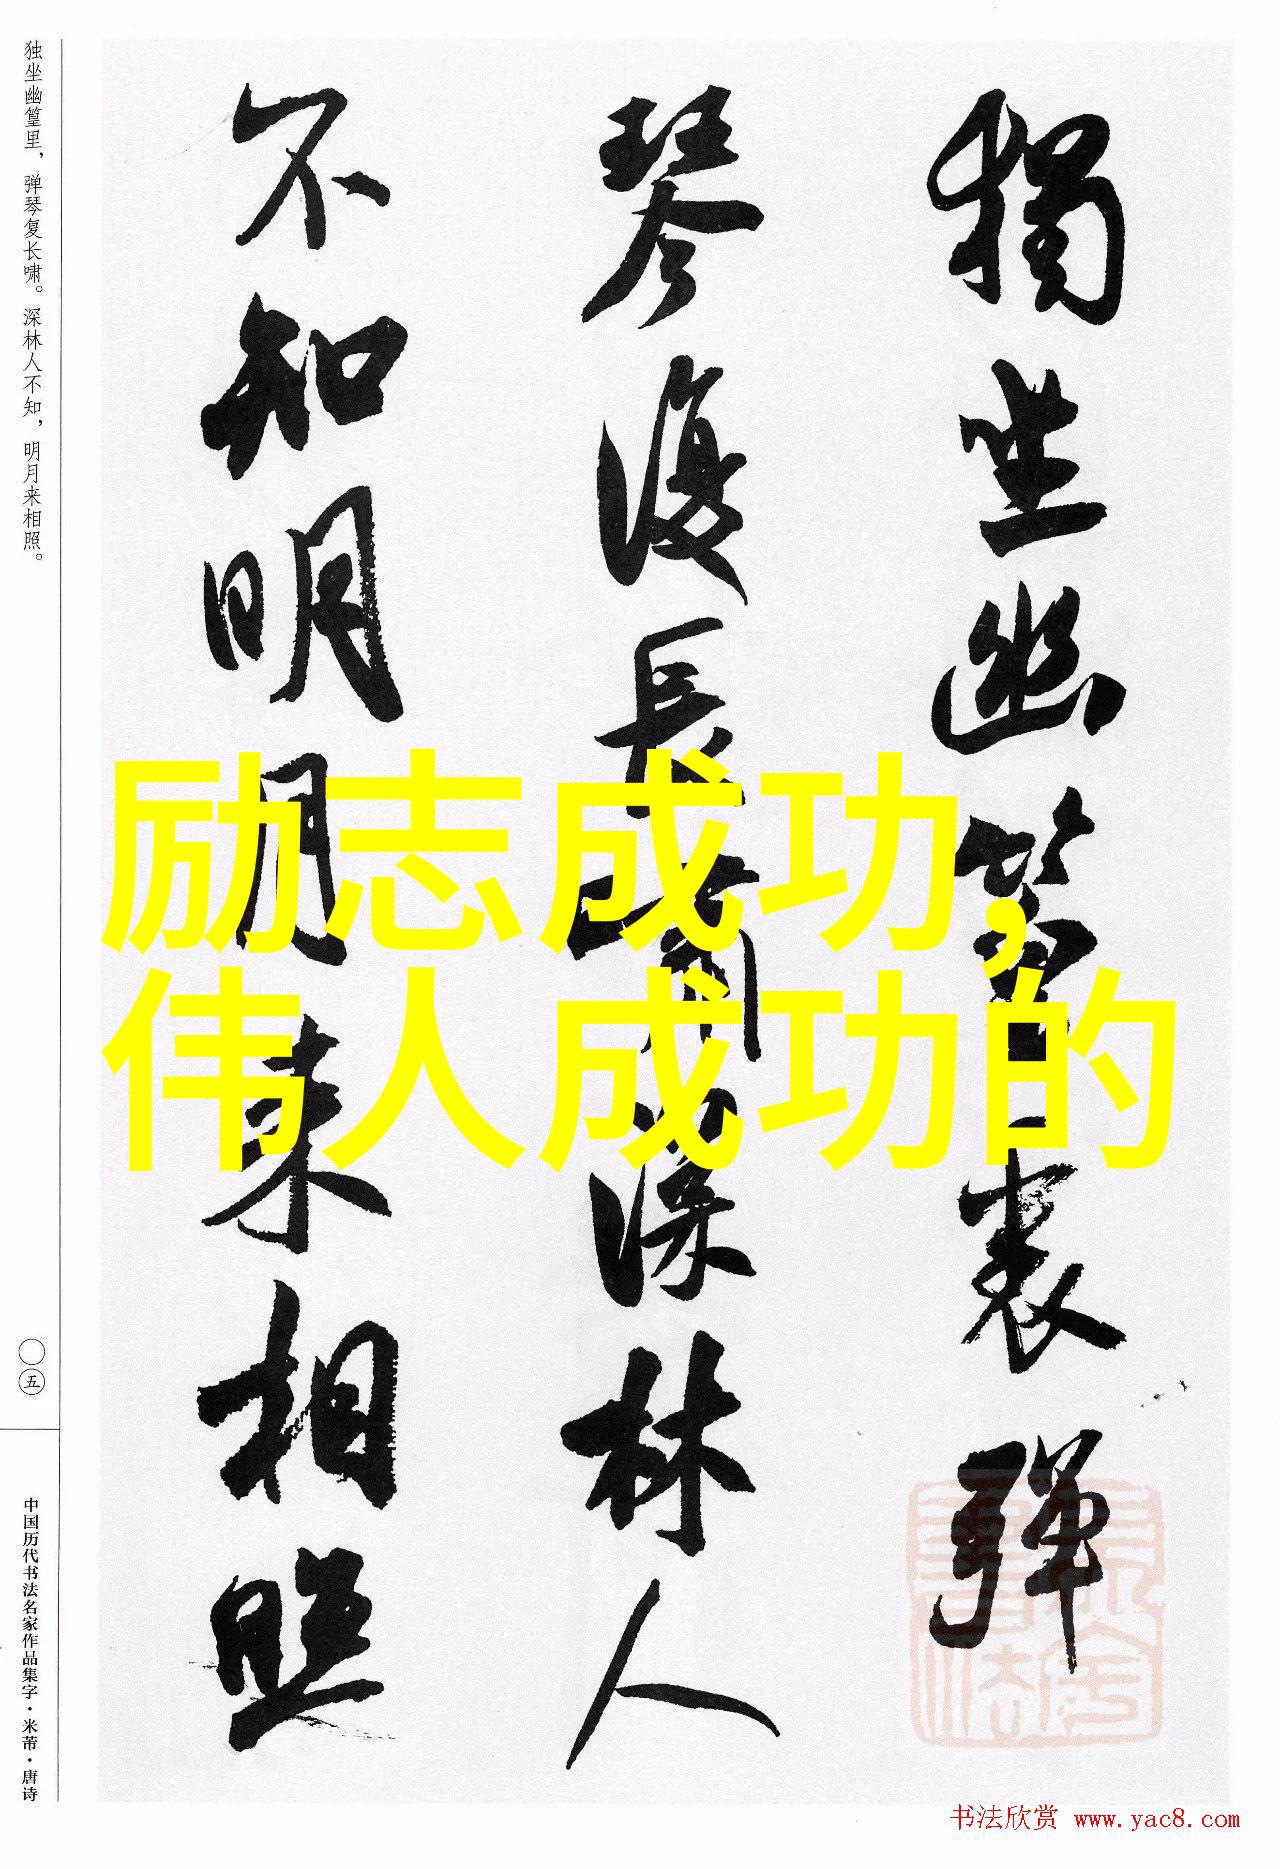 独坐幽篁里，弹琴复长啸。深林人不知，明月来相照。
〇五
中国历代书法名家作品集字·米芾·唐诗
獨坐幽篁裏彈
琴復長嘯深林人
不知明月来相照
励志成功，
伟人成功的
书法欣赏 www.yac8.com